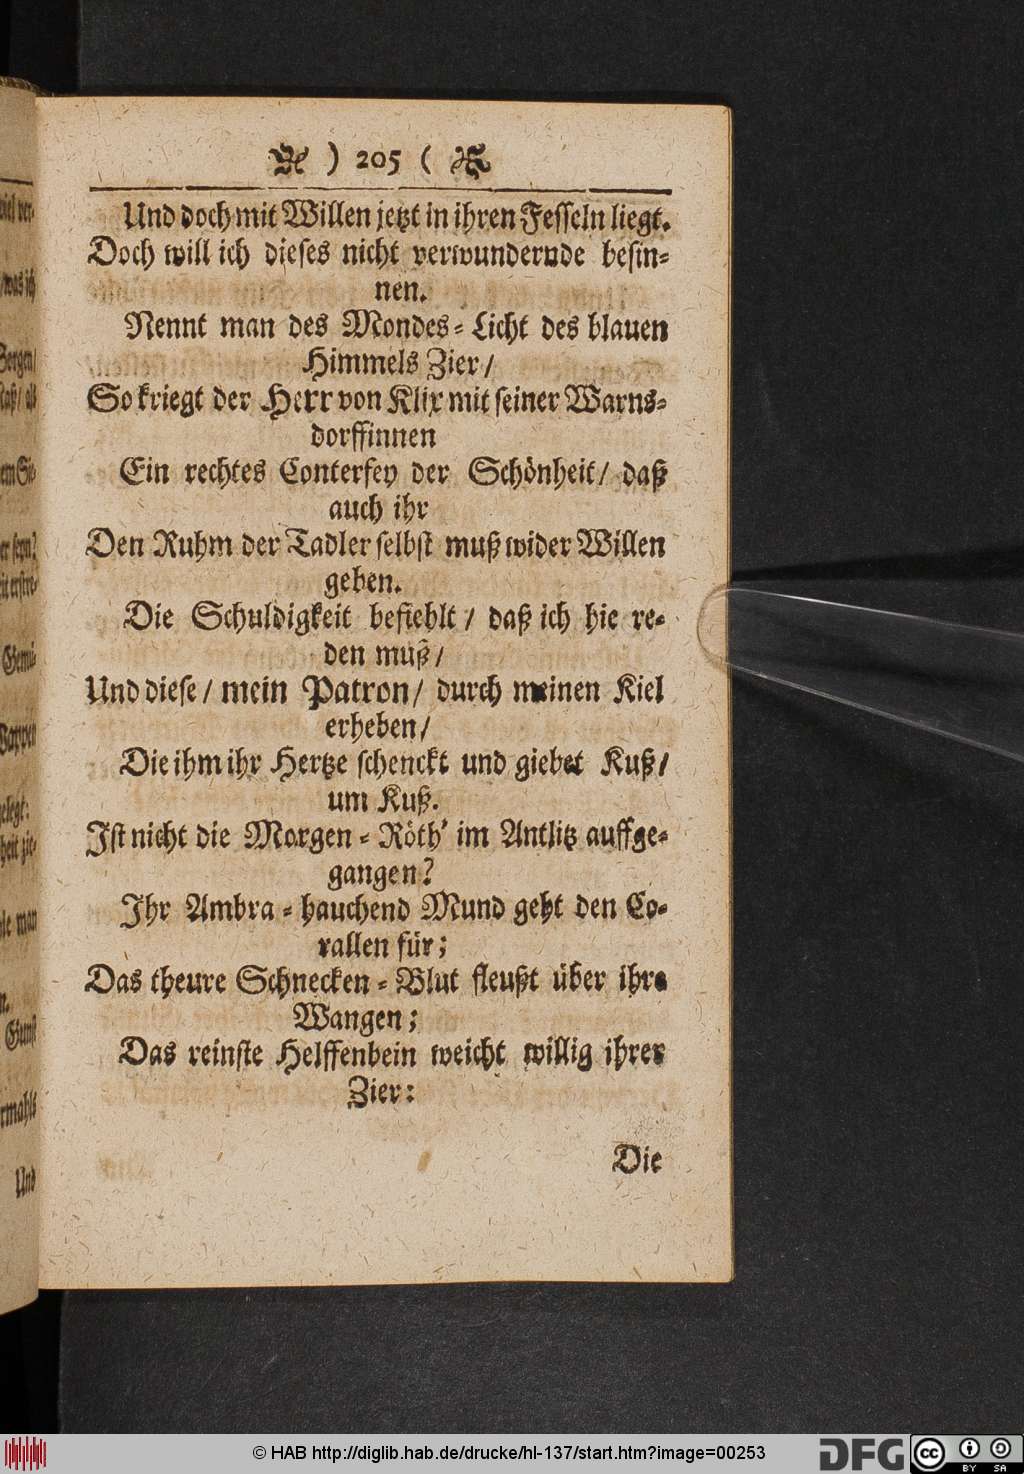 ) 205 (
Und doch mit Willen jetzt in ihren Fesseln liegt.
Doch will ich dieses nicht verwundernde besin-
nen.
Nennt man des Mondes-Licht des blauen
Himmels Zier/
So kriegt der Herr von Klix mit seiner Warns-
dorffinnen
Ein rechtes Conterfey der Schönheit/ daß
auch ihr
Den Ruhm der Tadler selbst muß wider Willen
geben.
Die Schuldigkeit befiehlt/ daß ich hie re-
den muß/
Und diese/ mein Patron/ durch meinen Kiel
erheben/
Die ihm ihr Hertze schenckt und giebet Kuß/
um Kuß.
Ist nicht die Morgen-Röth' im Antlitz auffge-
gangen?
Ihr Ambra-hauchend Mund geht den Co-
rallen für;
Das theure Schnecken-Blut fleußt über ihre
Wangen;
Das reinste Helffenbein weicht willig ihrer
Zier:
Die
© HAB http://diglib.hab.de/drucke/hl-137/start.htm?image=00253
DFG
cc BY SA